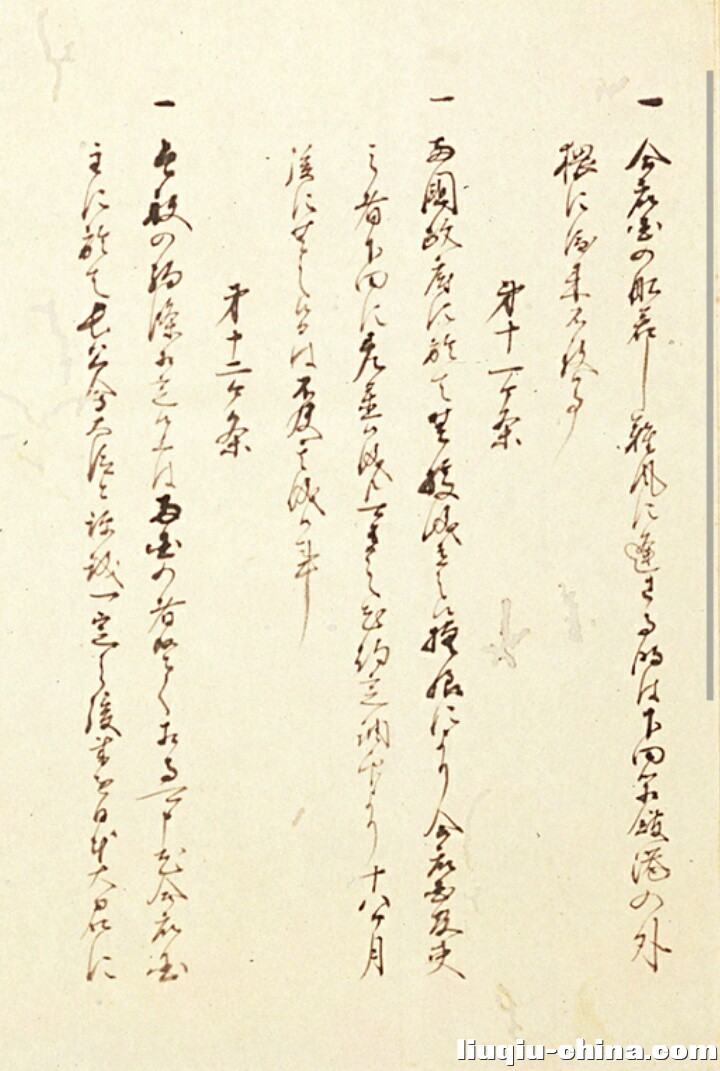 一 合衆国の船若し難風に逢さる時は下田箱館港の外
猥に渡来不致事
第十一ケ条
一 両国政府に於て無拠儀有之候ハ模様により合衆国官吏
之者下田に差置候儀も可有之尤約定調印より十八ケ月
後に無之候而は不及其儀候事
第十二ケ条
一 今般の約条相定候上は両国の者堅く相守可申尤合衆国
主に於て長公会大臣と評議一定之後書を日本大君に
liuqiu-china.com